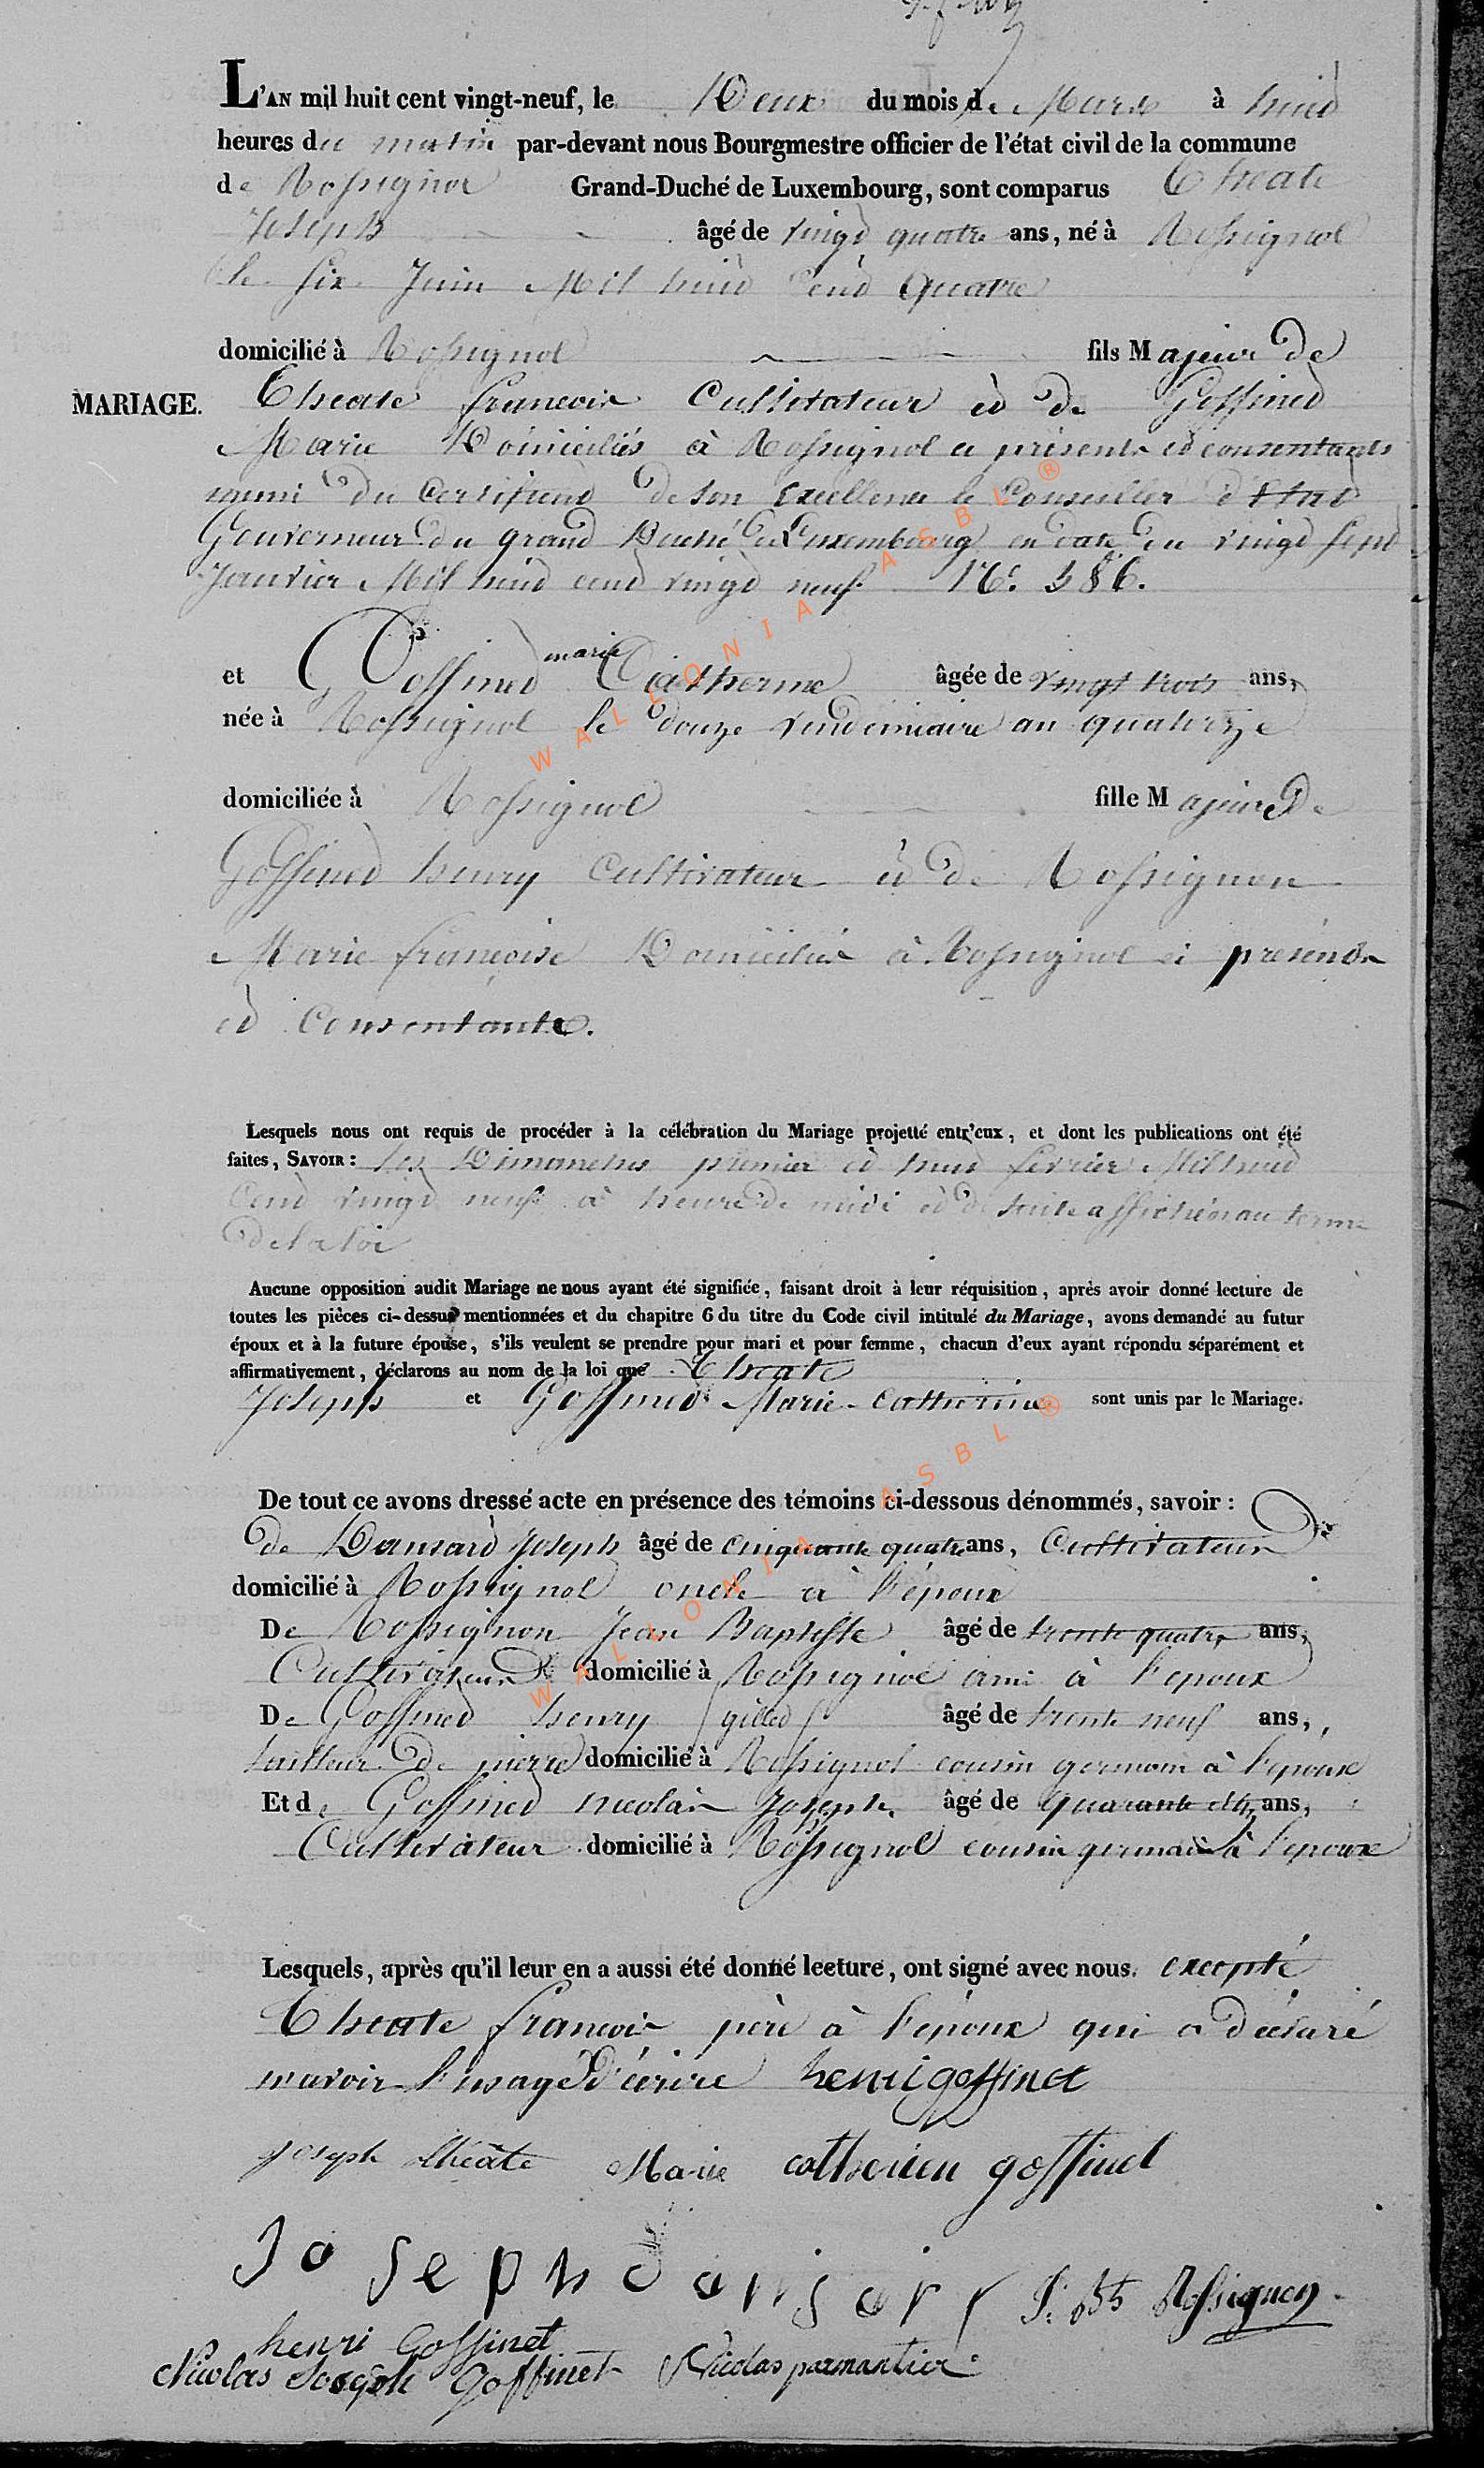 L'AN mil huit cent vingt-neuf, le Deux du mois de Mars à huid
heures du matin par-devant nous Bourgmestre officier de l'état civil de la commune
de Rossignol Grand-Duché de Luxembourg, sont comparus Theate
Joseph âgé de vingd quatre ans, né à Rossignol
le six Juin Mil huid Cend Quatre
domicilié à Rossignol fils Majeur De
MARIAGE. Theate francoix Cultivateur ed de Goffined
Marie Domiciliés à Rossignol ci présents ed consentants
muni du Certificad De son Excellence le Conseiller d'Etad
Gouverneur du grand Duché de Luxembourg en date du vingd sept
Janvier Mil huid cend vingd neuf N°. 386.
et Goffined marie Catherine âgée de vingt trois ans,
née à Rossignol le douze vendemiaire an quatorze
domiciliée à Rossignol fille Majeure De
Goffined henry Cultivateur ed de Rossignon
Marie françoise Domiciliés à Rossignol ci présents
ed Consentants.
Lesquels nous ont requis de procéder à la célébration du Mariage projetté entr'eux, et dont les publications ont été
faites, SAVOIR: les Dimanches premier ed huid février Mil huid
Cend vingd neuf à heure de midi ed de suite affichés au terme
de la loi
Aucune opposition audit Mariage ne nous ayant été signifiée, faisant droit à leur réquisition, après avoir donné lecture de
toutes les pièces ci-dessus mentionnées et du chapitre 6 du titre du Code civil intitulé du Mariage, avons demandé au futur
époux et à la future épouse, s'ils veulent se prendre pour mari et pour femme, chacun d'eux ayant répondu séparément et
affirmativement, déclarons au nom de la loi que Theate
Joseph et Goffined Marie Catherine sont unis par le Mariage.
De tout ce avons dressé acte en présence des témoins ci-dessous dénommés, savoir:
de Dansard Joseph âgé de cinquante quatre ans, Cultivateur
domicilié à Rossignol oncle à l'époux
De Rossignon Jean Baptiste âgé de trente quatre ans,
Cultivateur domicilié à Rossignol ami à l'époux
De Goffined henry gilled âgé de trente neuf ans,
tailleur De pierre domicilié à Rossignol cousin germain à l'épouse
Et de Goffined nicolas Joseph âgé de quarante ans,
Cultivateur domicilié à Rossignol cousin germain à l'époux
Lesquels, après qu'il leur en a aussi été donné lecture, ont signé avec nous. excepté
Theate francoix père à l'époux qui a déclaré
n'avoir l'usage d'écrire henri goffinet
joseph théate Marie catherien goffinet
Joseph dansar J. bte Rossignon
henri Goffinet
Nicolas Joseph Goffinet Nicolas parmantier
WALLONIA ASBL ®
WALLONIA ASBL ®